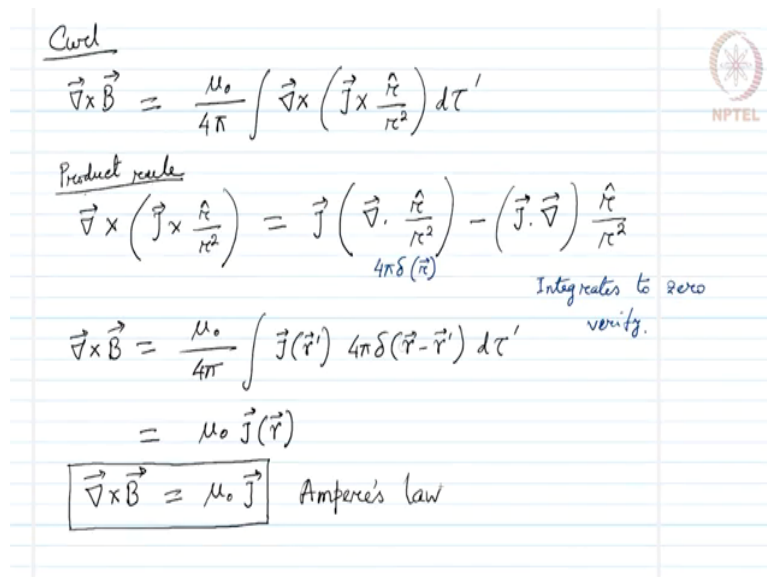 Curl
∇⃗×B⃗ = μ₀/4π ∫ ∇⃗×(J⃗×r̂/r²) dτ'
NPTEL
Product rule
∇⃗×(J⃗×r̂/r²) = J⃗(∇⃗·r̂/r²) − (J⃗·∇⃗)r̂/r²
4πδ(r⃗)
Integrates to zero
verify.
∇⃗×B⃗ = μ₀/4π ∫ J⃗(r⃗') 4πδ(r⃗−r⃗') dτ'
= μ₀ J⃗(r⃗)
∇⃗×B⃗ = μ₀ J⃗ Ampere's law